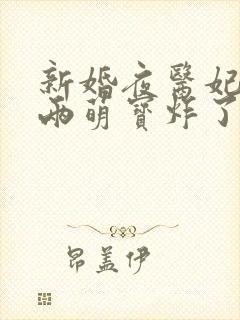 新婚夜醫妃
兩萌寶炸了
昂盖伊